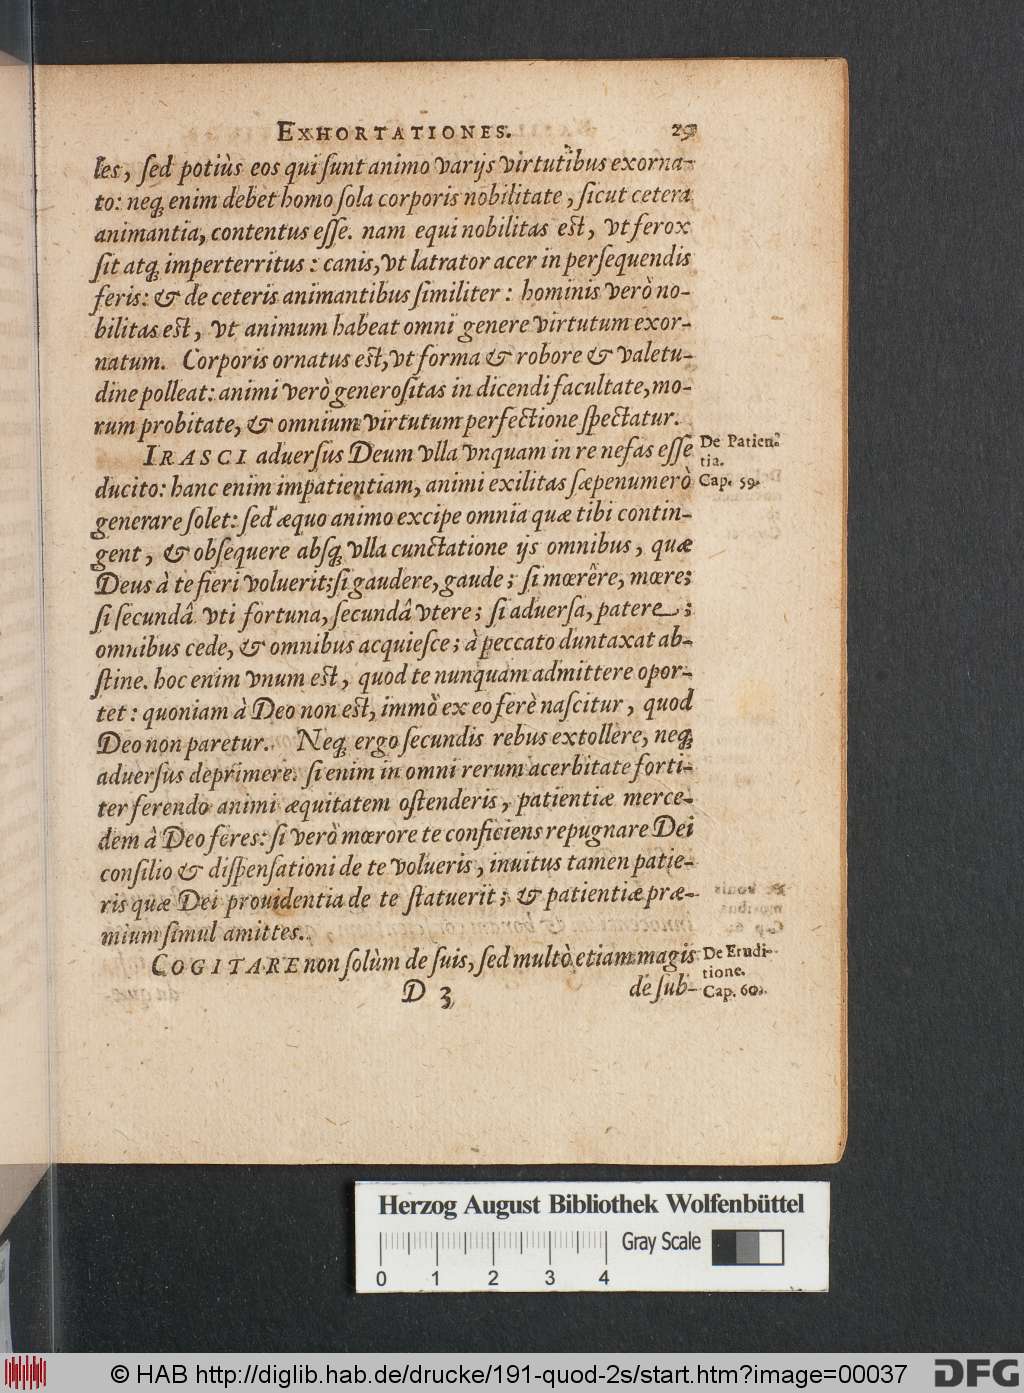 EXHORTATIONES. 29
les, sed potiùs eos qui sunt animo varijs virtutibus exorna-
to: neq; enim debet homo sola corporis nobilitate, sicut cetera
animantia, contentus esse. nam equi nobilitas est, vt ferox
sit atq; imperterritus: canis, vt latrator acer in persequendis
feris: & de ceteris animantibus similiter: hominis verò no-
bilitas est, vt animum habeat omni genere virtutum exor-
natum. Corporis ornatus est, vt forma & robore & valetu-
dine polleat: animi verò generositas in dicendi facultate, mo-
rum probitate, & omnium virtutum perfectione spectatur.
IRASCI aduersus Deum vlla vnquam in re nefas esse
De Patien-
tia.
Cap. 59.
ducito: hanc enim impatientiam, animi exilitas sæpenumerò
generare solet: sed æquo animo excipe omnia quæ tibi contin-
gent, & obsequere absq; vlla cunctatione ijs omnibus, quæ
Deus à te fieri voluerit; si gaudere, gaude; si mœrêre, mœre;
si secundâ vti fortuna, secundâ vtere; si aduersa, patere;
omnibus cede, & omnibus acquiesce; à peccato duntaxat ab-
stine. hoc enim vnum est, quod te nunquam admittere opor-
tet: quoniam à Deo non est, immò ex eo ferè nascitur, quod
Deo non paretur. Neq; ergo secundis rebus extollêre, neq;
aduersus deprimere. si enim in omni rerum acerbitate forti-
ter ferendo animi æquitatem ostenderis, patientiæ merce-
dem à Deo feres: si verò mœrore te conficiens repugnare Dei
consilio & dispensationi de te volueris, inuitus tamen patie-
ris quæ Dei prouidentia de te statuerit; & patientiæ præ-
mium simul amittes.
COGITARE non solùm de suis, sed multò etiam magis
De Erudi-
tione.
Cap. 60.
D 3 de sub-
Herzog August Bibliothek Wolfenbüttel
Gray Scale
0 1 2 3 4
© HAB http://diglib.hab.de/drucke/191-quod-2s/start.htm?image=00037
DFG